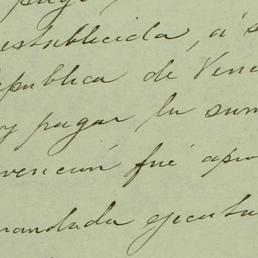 establecida, á s
epublica de Vene
y pagar la sum
vención fué apro
mandada ejecuta